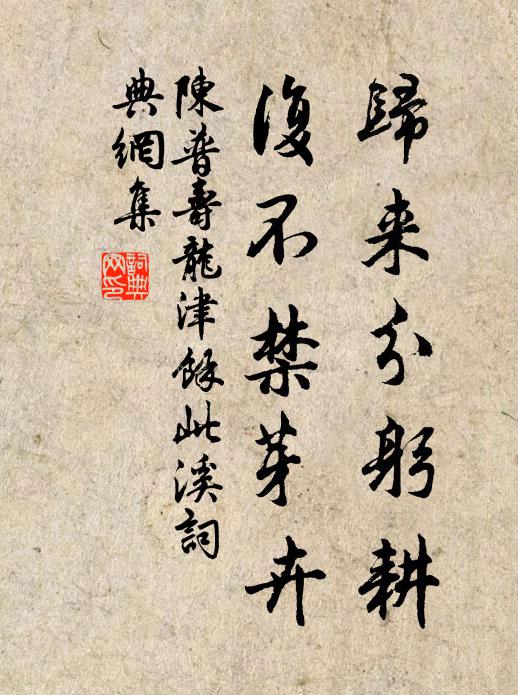 歸来分躬耕
復不禁芽卉
陳普壽龍津餘此溪詞
典網集
詞典
网印